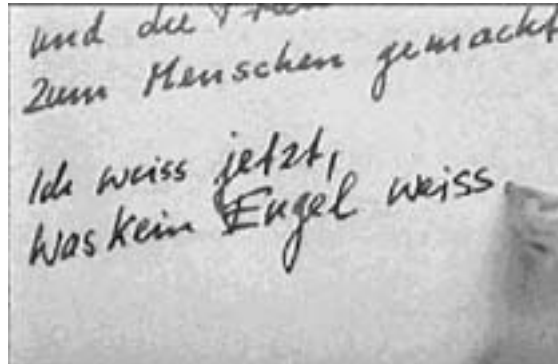 und die Frau
zum Menschen gemacht
Ich weiss jetzt,
was kein Engel weiss.